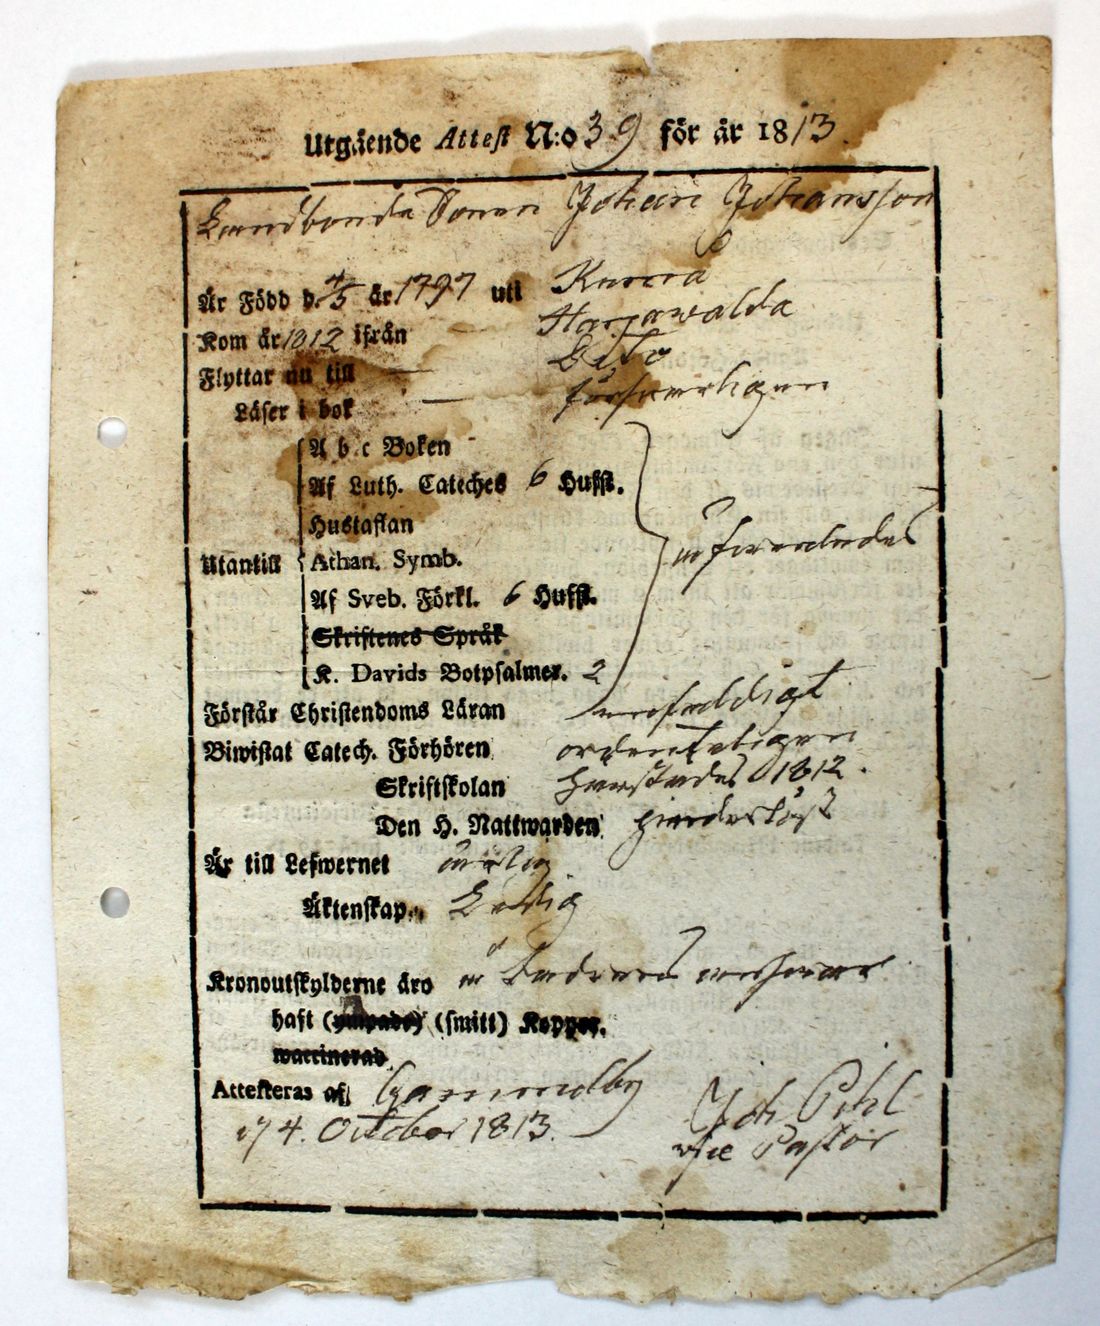 Utgående Attest N:o 39 för år 1813.
Landbonde Sonen Johan Johansson
Är Född d. 4/5 år 1797 uti Kumo
Kom år 1812 ifrån Harjawalda
Flyttar nu till Dito
Läser i bok försvarligen
A b c Boken
Af Luth. Cateches 6 Hufst.
Hustaflan
Utantill Athan. Symb.
Af Sveb. Förkl. 6 Hufst.
Skriftenes Språk
K. Davids Botpsalmer. 2
Förstår Christendoms Läran enfaldigt
Biwistat Catech. Förhören ordenteligen
Skriftskolan härstädes 1812.
Den H. Nattwarden hinderlöst
Är till Lefwernet ärlig
Äktenskap. Ledig
Kronoutskylderne äro
haft (ympade) (smitt) Koppor.
waccinerad
Attesteras af Gammelby
d 4. October 1813. Joh Pihl
vice Pastor